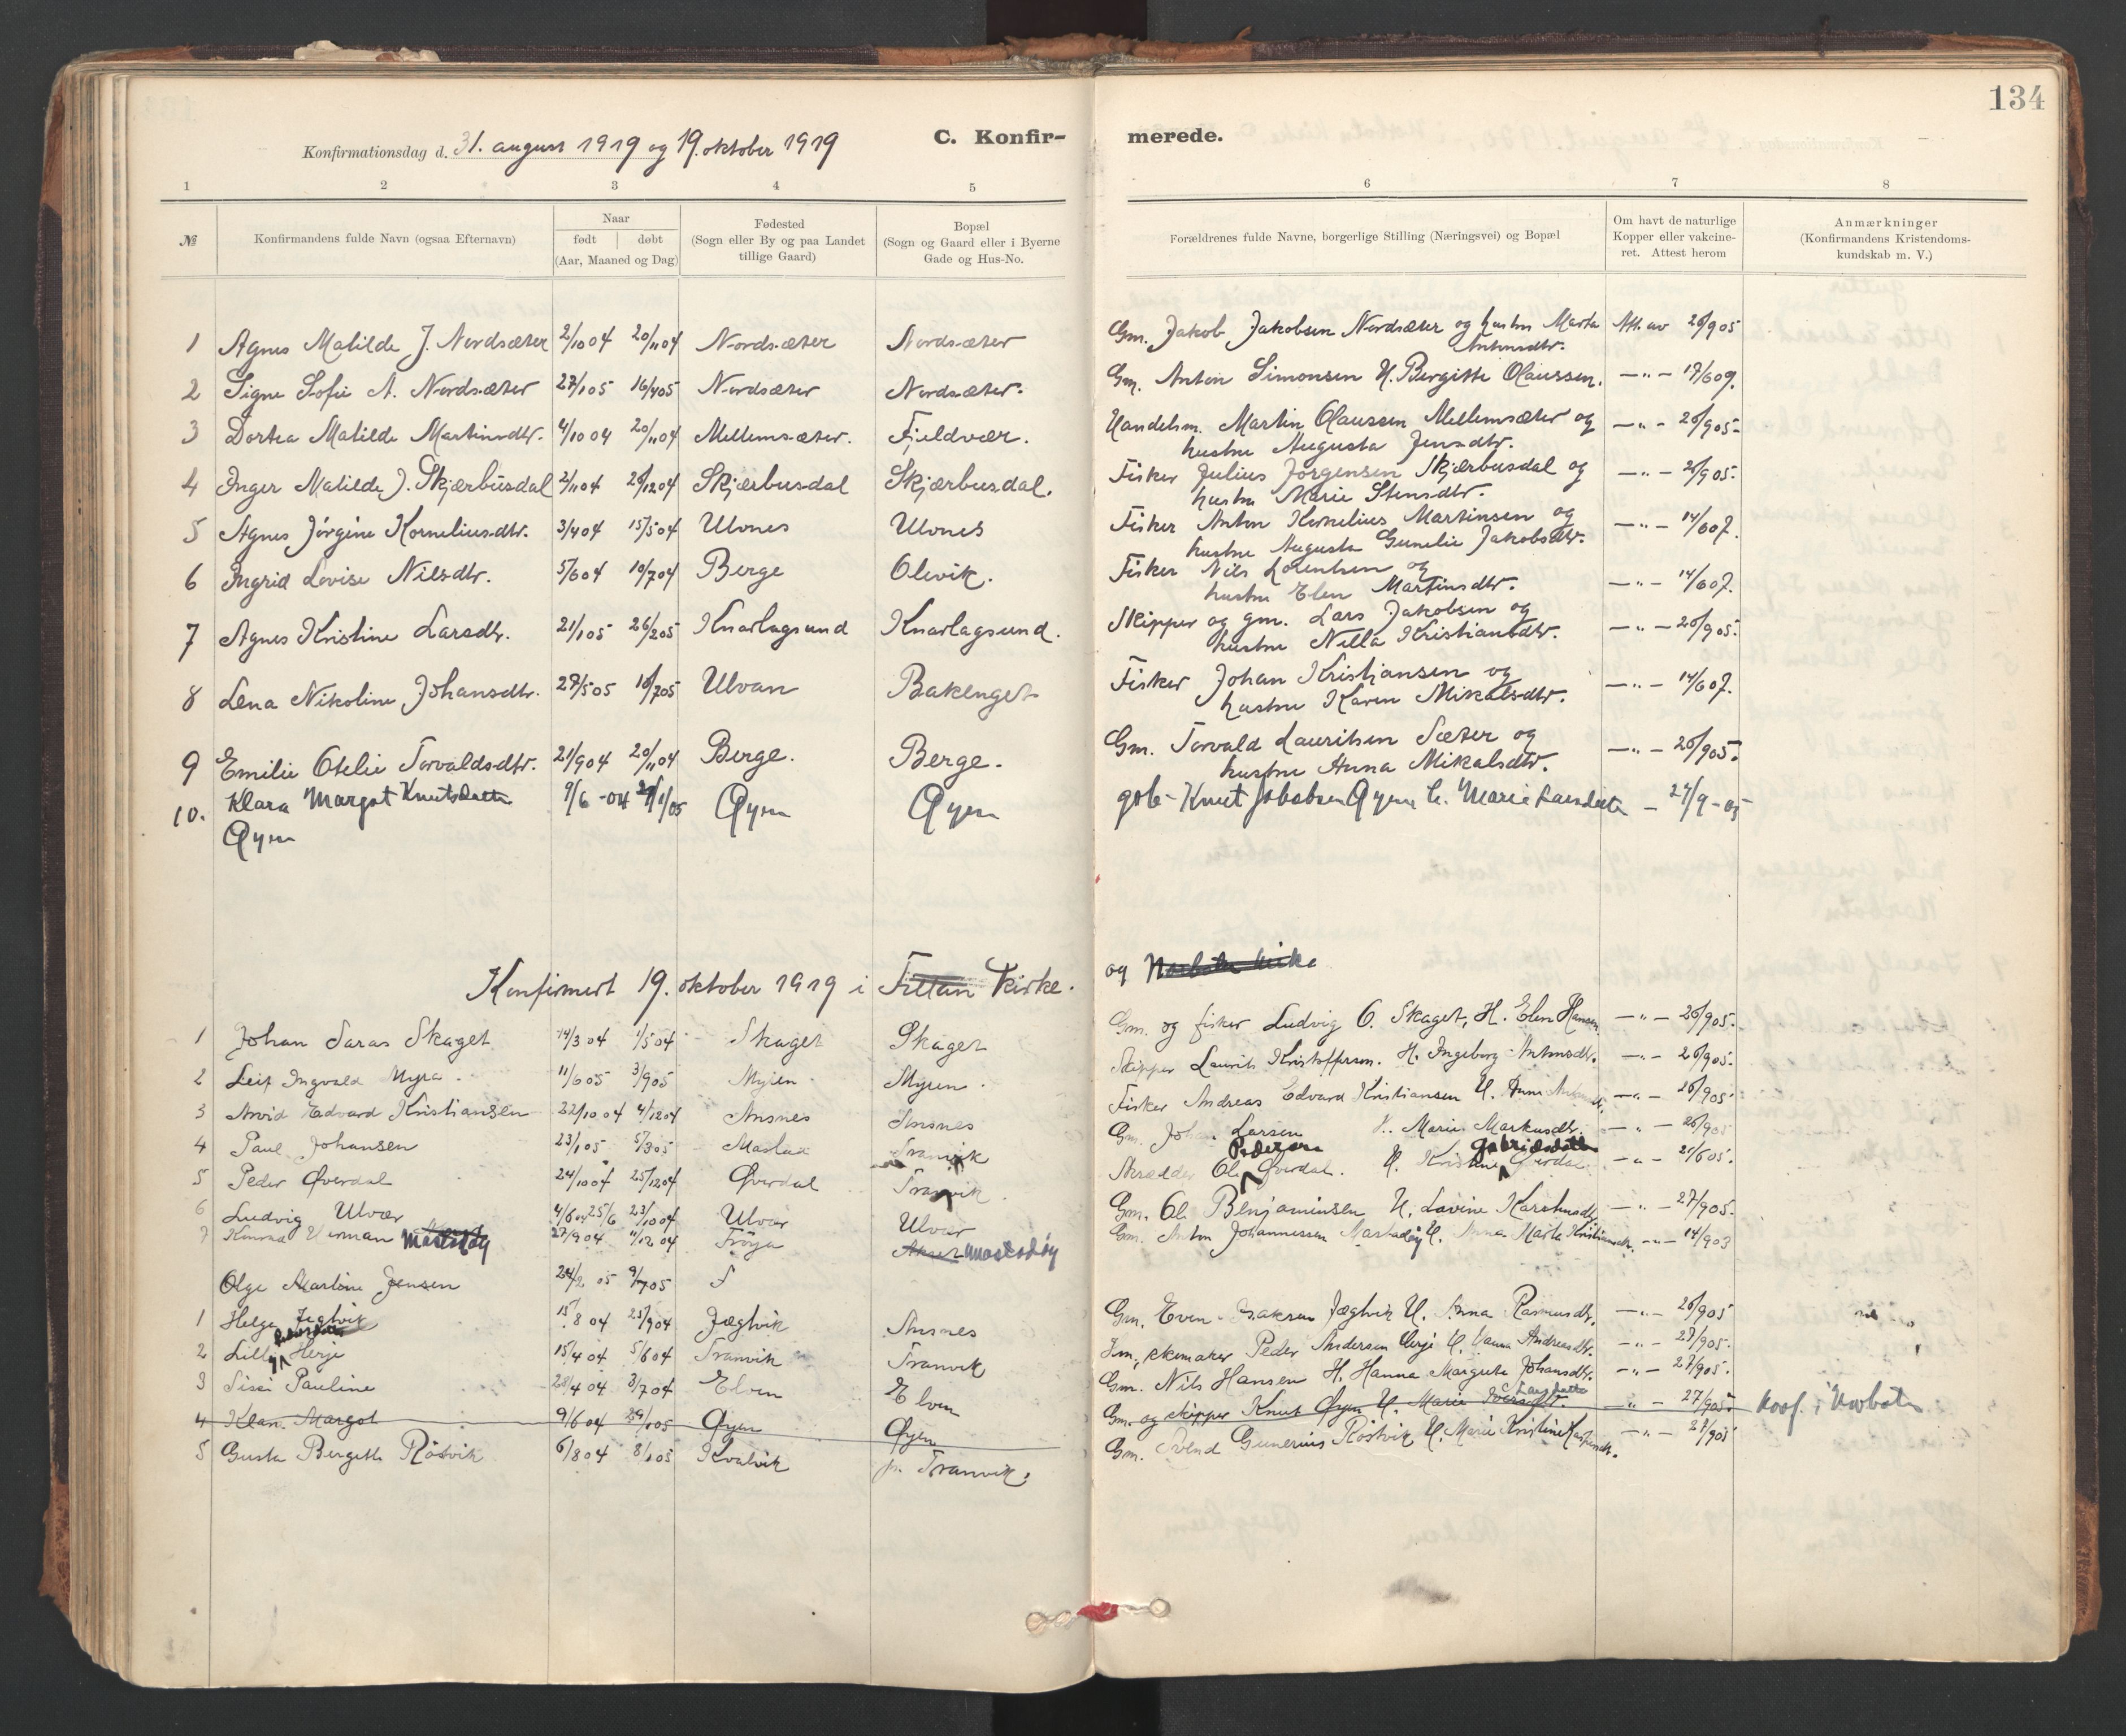 134
C. Konfir-
merede.
Konfirmationsdag d. 31. august 1919 og 19. oktober 1919
1 2 3 4 5 6 7 8
№
Konfirmandens fulde Navn (ogsaa Efternavn)
Naar
født | døbt
(Aar, Maaned og Dag)
Fødested
(Sogn eller By og paa Landet
tillige Gaard)
Bopæl
(Sogn og Gaard eller i Byerne
Gade og Hus-No.
Forældrenes fulde Navne, borgerlige Stilling (Næringsvei) og Bopæl
Om havt de naturlige
Kopper eller vakcine-
ret. Attest herom
Anmærkninger
(Konfirmandens Kristendoms-
kundskab m. V.)
1 Agnes Matilde J. Nordsæter 2/10 04 20/11 04 Nordsæter Nordsæter Gm. Jakob Jakobsen Nordsæter og hustru Marta Att. av 26/9 05
Antonsdtr.
2 Signe Sofie A. Nordsæter 27/1 05 16/4 05 Nordsæter Nordsæter. Gm. Anton Simonsen H. Bergitte Olaussen. —"— 17/6 09.
3 Dortea Matilde Martinsdtr. 4/10 04 20/11 04 Mellemsæter. Fjeldvær. Handelsm. Martin Olaussen Mellemsæter og —"— 26/9 05.
hustru Augusta Jensdtr.
4 Inger Matilde J. Skjærbusdal 2/11 04 26/12 04 Skjærbusdal Skjærbusdal. Fisker Julius Jørgensen Skjærbusdal og —"— 26/9 05.
hustru Marie Stensdtr.
5 Agnes Jørgine Korneliusdtr. 3/4 04 15/5 04 Ulvnes Ulvnes Fisker Anton Kornelius Martinsen og —"— 14/6 07.
hustru Augusta Gunelie Jakobsdtr.
6 Ingrid Lovise Nilsdtr. 5/6 04 10/7 04 Berge Olevik. Fisker Nils Lorentsen og —"— 14/6 07.
hustru Elen Martinsdtr.
7 Agnes Kristine Larsdtr. 21/1 05 26/2 05 Knarlagsund Knarlagsund. Skipper og gm. Lars Jakobsen og —"— 26/9 05.
hustru Nilla Kristiansdtr.
8 Lena Nikoline Johansdtr. 27/5 05 16/7 05 Ulvan Bakenget Fisker Johan Kristjansen og —"— 14/6 07.
hustru Karen Mikalsdtr.
9 Emilie Otelie Torvaldsdtr. 21/9 04 20/11 04 Berge. Berge. Gm. Torvald Lauritsen Sæter og —"— 26/9 05.
hustru Anna Mikalsdtr.
10. Klara Margot Knutsdatter 9/6 -04 29/1/05 Øyen Øyen gbr. Knut Jakobsen Øyen h. Marie Larsdatter — 27/9-05
Øyen
Konfirmert 19. oktober 1919 i Fillan Kirke. og kirke
1 Johan Saras Skaget 14/3 04 1/5 04 Skaget Skaget Gm. og fisker Ludvig O. Skaget, H. Elen Hansen —"— 26/9 05.
2 Leif Ingvald Myra 11/6 05 3/9 05 Myren Myren. Skipper Laurits Kristoffersen. H. Ingeborg Antonsdtr. —"— 26/9 05.
3 Arvid Edvard Kristiansen 22/10 04 4/12 04 Ansnes Ansnes Fisker Andreas Edvard Kristiansen H. —"— 26/9 05
4 Paul Johansen 23/1 05 5/3 05 Tranvik Gm. Johan Larsen H. Marie Markusdtr. —"— 26/9 05
5 Peder Øverdal 24/10 04 25/12 04 Øverdal Tranvik. Skrædder Ole Pedersen Øverdal. H. Kristine Gabrielsdatter Øverdal —"— 21/6 05.
6 Ludvig Ulvær 4/6 04 25/6 23/10 04 Ulvær Ulvær Gm. Ole Benjaminsen H. Lovine Karstensdtr —"— 27/9 05.
7 Konrad Herman Mastadøy 27/9 04 11/12 04 Frøya Mastadøy Gm. Anton Johannessen Mastadøy H. Anna Marta Kristiansdtr. —"— 14/9 03
Olga Martine Jensen 24/2 05 9/7 05 F
1 Helge Jegtvik 15/8 04 25/9 04 Jægtvik Ansnes Gm. Even Isaksen Jægtvik H. Anna Rasmusdtr. —"— 26/9 05
2 Lilly Herje 15/4 04 5/6 04 Tranvik Tranvik Im. skomaker Peder Andersen Herje H. Hanna Andreasdtr. —"— 27/9 05.
3 Sissi Pauline 28/4 04 3/7 04 Elven Elven Gm. Nils Hansen H. Hanna Margrete Johansdtr. —"— 27/9 05.
4 Klara Margot 9/6 04 29/1 05 Øyen Øyen Gm. og skipper Knut Øyen H. Marie Iversdtr. Larsdatter —"— 27/9 05 Konf. i Norbotn
5 Gusta Bergitte Røsvik 6/8 04 8/1 05 Kvalvik p. Tranvik. Gm. Svend Gunerius Røstvik H. Marie Kristine Kaspersdtr. —"— 27/9 05